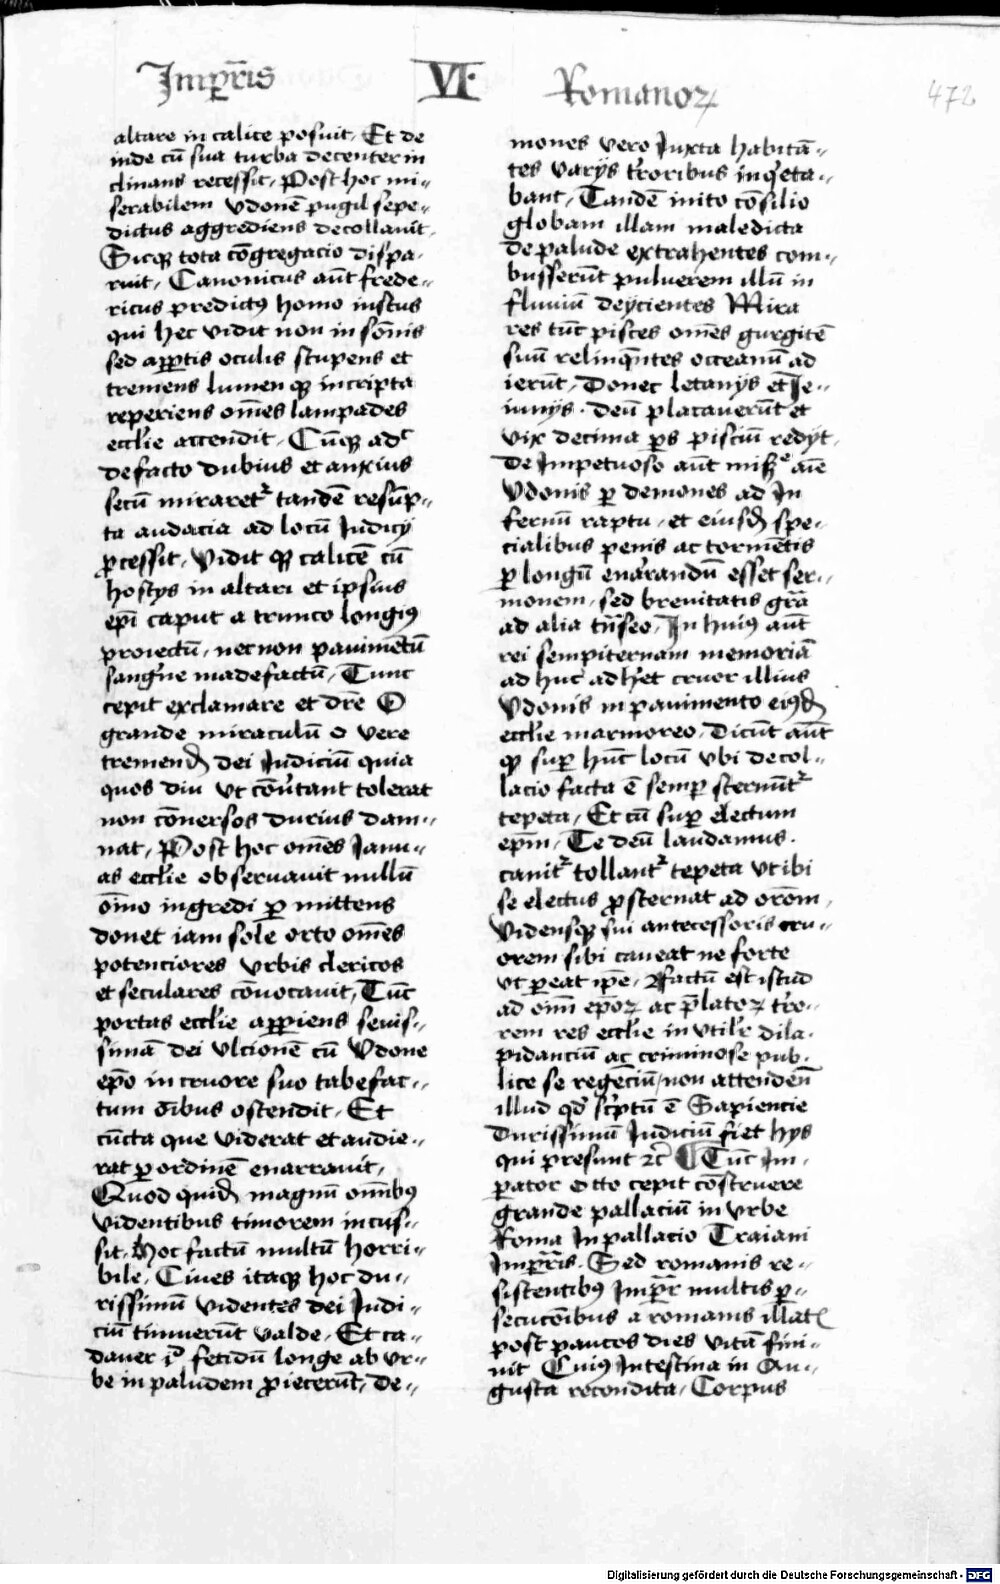 Imp̄ris VI Romanoꝝ 472
altare in calice posuit, Et de
inde cū sua turba decenter in
clinans recessit, Post hoc mi-
serabilem vdonē pugil sepe-
dictus aggrediens decollauit.
Sicqꝫ tota cōgregacio dispa-
ruit, Canonicus aūt frede-
ricus predictꝰ homo iustus
qui hec vidit non in sōnis
sed apꝑtis oculis stupens et
tremens lumen qꝫ in cripta
reperiens om̄es lampades
eccl̄ie accendit, Cūqꝫ adᶜ
de facto dubius et anxius
secū miraretᷣ tandē resūp-
ta audacia ad locū Iudicij
ꝓcessit, vidit qꝫ calicē cū
hostijs in altari et ipsius
ep̄i caput a trunco longiꝰ
proiectū, necnon pauimētū
sangᷣne madefactū, Tunc
cepit exclamare et dr̄e O
grande miraculū o vere
tremend̄ dei Iudiciū quia
quos diu vt cōuᷣtant tolerat
non cōuersos durius dam-
nat, Post hoc om̄es Ianu-
as eccl̄ie obseruauit nullū
om̄o ingredi ꝑmittens
donec iam sole orto om̄es
potenciores vrbis clericos
et seculares cōuocauit, Tūc
portas eccl̄ie apꝑiens seuis-
simā dei vlcionē cū Vdone
ep̄o in cruore suo tabefac-
tum oībus ostendit, Et
cūcta que viderat et audie-
rat ꝑ ordinē enarrauit,
Quod quid̄ magnū om̄ibꝰ
videntibus timorem incus-
sit, hoc factū multū horri-
bile, Ciues itaqꝫ hoc du-
rissimū videntes dei Iudi-
ciū timuerūt valde, Et ca-
dauer fetidū longe ab vr-
be in paludem ꝓiecerūt, de-
mones vero Iuxta habitā-
tes varijs tᷣroribus inqᷣeta-
bant, Tandē inito cōsilio
globam illam maledicta
de palude extrahentes com-
busserūt puluerem illū in
fluuiū deijcientes Mira
res tūc pisces om̄es gurgitē
suū relinqn̄tes occeanū ad
ierūt, Donec letanijs et Ie-
iunijs. deū placauerūt et
vix decima ꝑs pisciū redijt,
De Impetuoso aūt misᵉ aīe
Vdonis ꝑ demones ad In
fernū raptu, et eiusd̄ spe-
cialibus penis ac tormētis
ꝑ longū enarrandū esset ser-
monem, sed breuitatis grā
ad alia tn̄seo, In huiꝰ aūt
rei sempiternam memoriā
adhuc adhᷣet cruor illius
Vdonis in pauimento eiꝰd̄
eccl̄ie marmoreo, Dicūt aūt
qꝫ suꝑ hūc locū vbi decol-
lacio facta ē semꝑ sternūtᷣ
tepeta, Et cū suꝑ electum
ep̄m, Te deū laudamus.
canitᷣ tollantᷣ tepeta vt ibi
se electus ꝓsternat ad orōem,
Vidensqꝫ sui antecessoris cru-
orem sibi caueat ne forte
vt ꝑeat ip̄e, Factū est istud
ad oīm ep̄oꝝ ac p̄latoꝝ tᷣro-
rem res eccl̄ie inutilᷣr dila-
pidanciū ac criminose pub-
lice se regēciū, non attenden̄
illud qd̄ sc̄ptū ē Sapiencie
Durissimū Iudiciū fiet hys
qui presunt ⁊c̄ ¶ Tūc Im-
ꝑator Otto cepit cōstruere
grande pallaciū in vrbe
Roma In pallacio Traiani
Imp̄ris. Sed romanis re-
sistentibꝰ Imꝑr multis ꝑ-
secucōibus a romanis illat̄
post paucos dies vitā fini-
uit Cuiꝰ Intestina in Au-
gusta recondita, Corpus
Digitalisierung gefördert durch die Deutsche Forschungsgemeinschaft - DFG